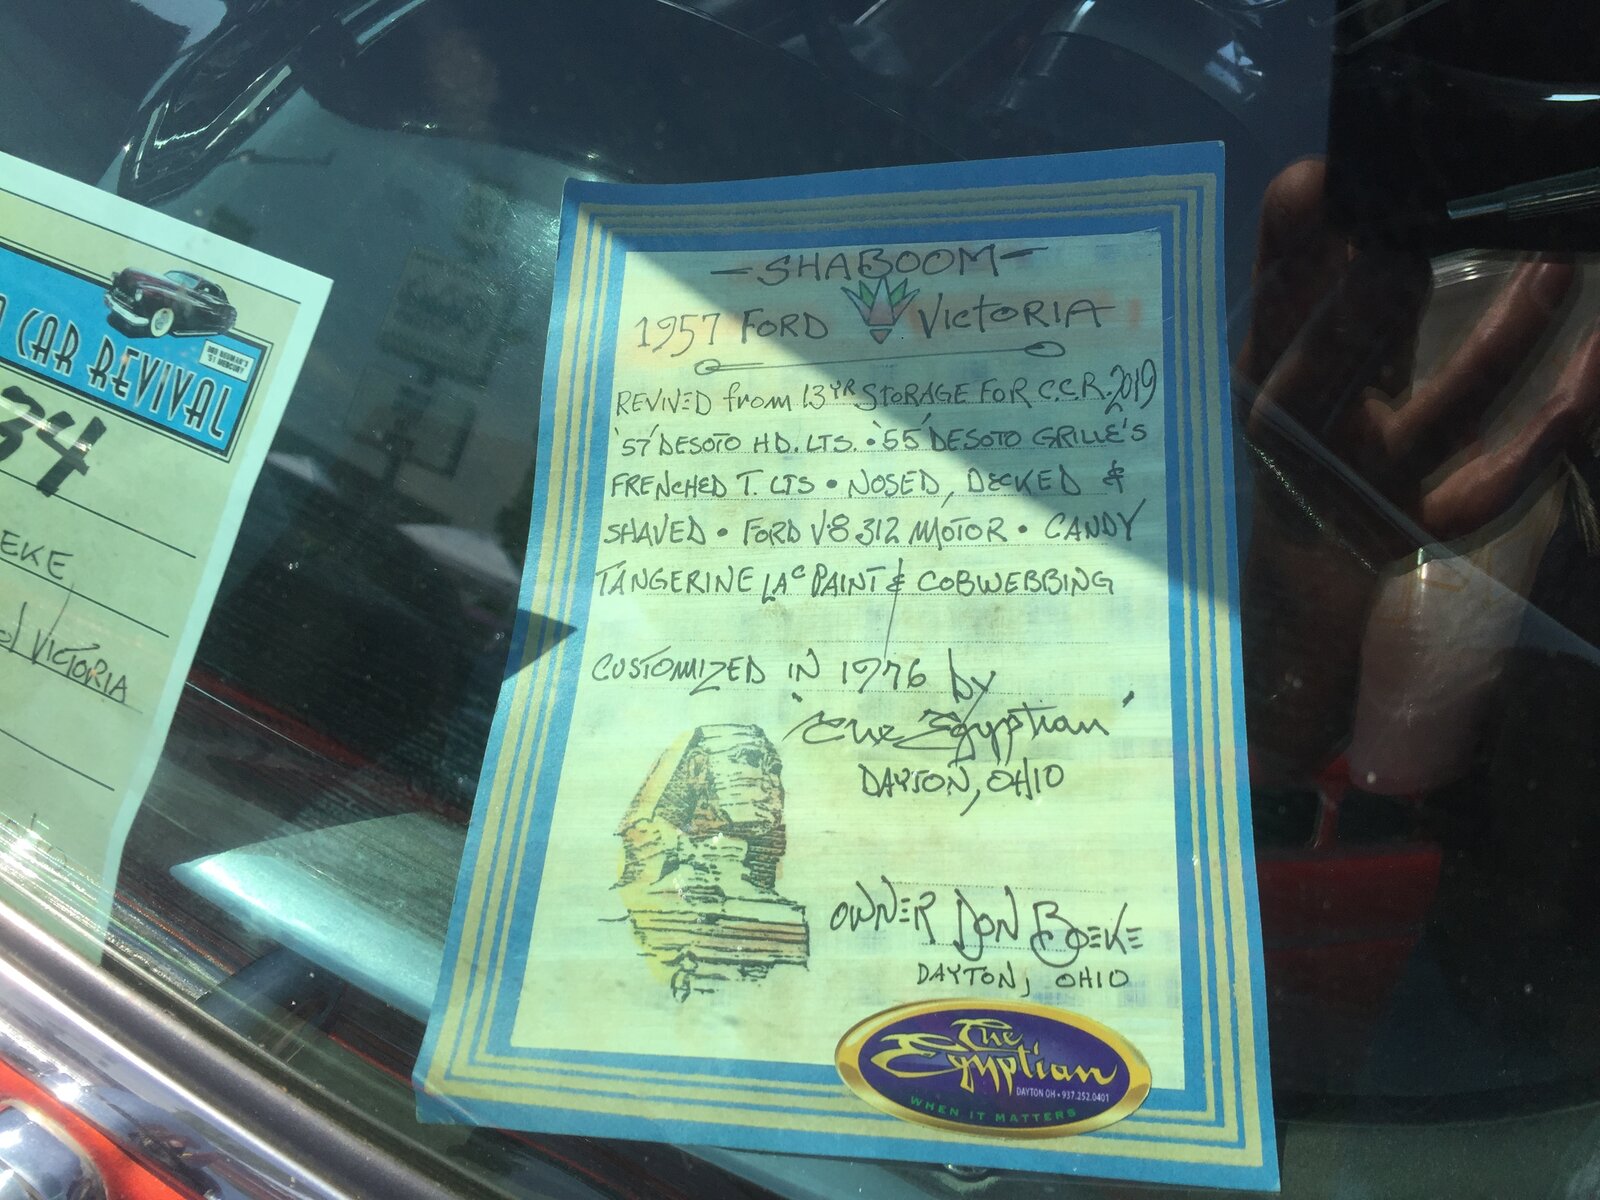 CAR REVIVAL
BOB NEUMAN'S
'51 MERCURY
34
EKE
VICTORIA
-SHABOOM-
1957 FORD VICTORIA
REVIVED from 13YR STORAGE FOR C.C.R. 2019
'57' DESOTO HD. LTS. • '55' DESOTO GRILLE'S
FRENCHED T. LTS • NOSED, DECKED &
SHAVED • FORD V-8 312 MOTOR • CANDY
TANGERINE LAC PAINT & COBWEBBING
CUSTOMIZED IN 1976 by
'The Egyptian'
DAYTON, OHIO
OWNER DON BOEKE
DAYTON, OHIO
The
Egyptian
DAYTON OH • 937.252.0401
WHEN IT MATTERS